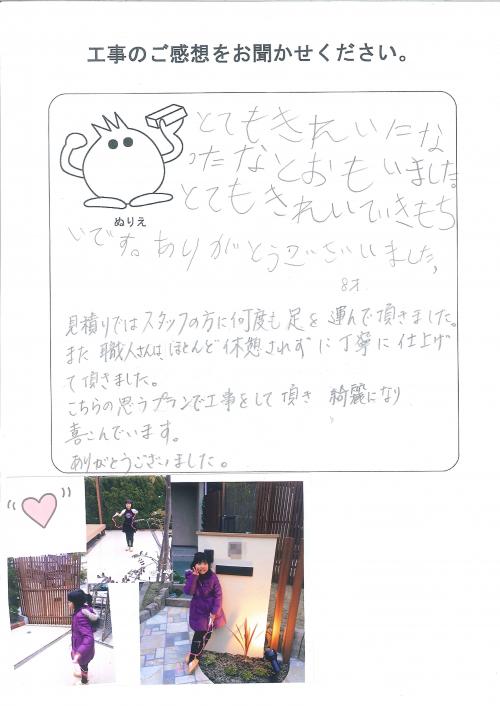 工事のご感想をお聞かせください。
ぬりえ
とてもきれいにな
ったなとおもいました。
とてもきれいでいきもち
いです。ありがとうございました。
8才
見積りではスタッフの方に何度も足を運んで頂きました。
また 職人さんは、ほとんど休憩されずに丁寧に仕上げ
て頂きました。
こちらの思うプランで工事をして頂き 綺麗になり
喜こんでいます。
ありがとうございました。